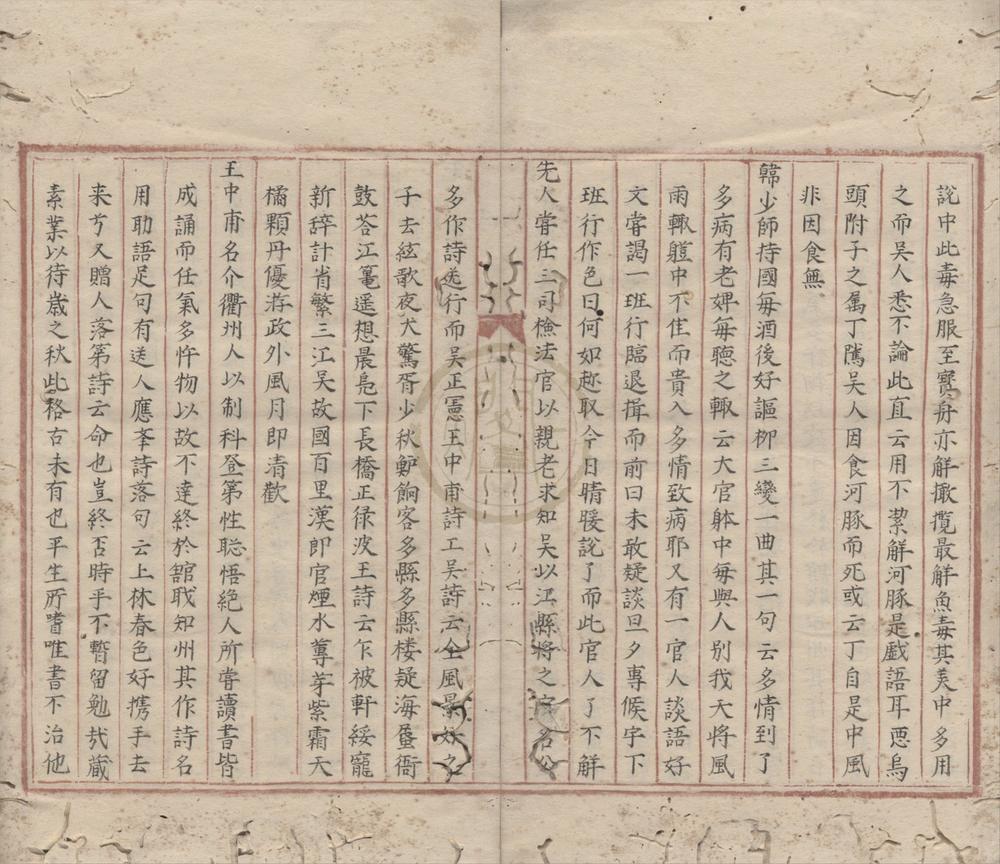 說中此毒急服至寶丹亦解橄欖最解魚毒其羙中多用
之而吴人悉不論此直云用不絜解河豚是戯語耳惡烏
頭附子之属丁隲吴人因食河豚而死或云丁自是中風
非因食無
韓少師持國每酒後好謳柳三變一曲其一句云多情到了
多病有老婢每聴之輙云大官躰中每與人别我天將風
雨輙軆中不佳而貴人多情致病耶又有一官人談語好
文甞謁一班行臨退揖而前曰未敢疑談旦夕專候宇下
班行作色曰何如趂取今日晴暖說了而此官人了不解
先人甞任三司檢法官以親老求知吴以江縣將之官名公
多作詩送行而吴正憲王中甫詩工吴詩云全風景好之
子去絃歌夜犬驚胥少秋鱸餉客多縣多縣楼疑海蜃衙
鼓荅江鼉遥想晨凫下長橋正徐波王詩云乍被軒綏寵
新辞計省繁三江吴故國百里漢郎官煙水蓴芽紫霜天
橘顆丹優游政外風月即清歡
王中甫名介衢州人以制科登第性聡悟絕人所甞讀書皆
成誦而任氣多忤物以故不達終於舘戝知州其作詩名
用助語足句有送人應夆詩落句云上林春色好携手去
来兮又贈人落第詩云命也豈終否時乎不暫留勉㢤藏
素業以待歳之秋此格古未有也平生所嗜唯書不治他